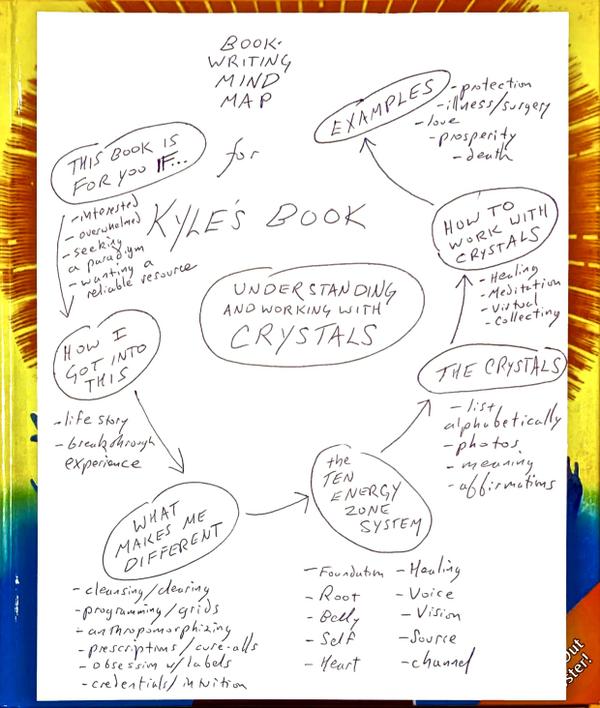 BOOK-
WRITING
MIND
MAP
for
KYLE'S BOOK
UNDERSTANDING
AND WORKING WITH
CRYSTALS
THIS BOOK IS
FOR YOU IF...
- interested
- overwhelmed
- seeking
a paradigm
- wanting a
reliable resource
HOW I
GOT INTO
THIS
- life story
- breakthrough
experience
WHAT
MAKES ME
DIFFERENT
- cleansing/clearing
- programming/grids
- anthropomorphizing
- prescriptions/cure-alls
- obsession w/labels
- credentials/intuition
the
TEN
ENERGY
ZONE
SYSTEM
- Foundation
- Root
- Belly
- Self
- Heart
- Healing
- Voice
- Vision
- Source
- channel
THE CRYSTALS
- list
alphabetically
- photos
- meaning
- affirmations
HOW TO
WORK WITH
CRYSTALS
- Healing
- Meditation
- Virtual
- Collecting
EXAMPLES
- protection
- illness/surgery
- love
- prosperity
- death